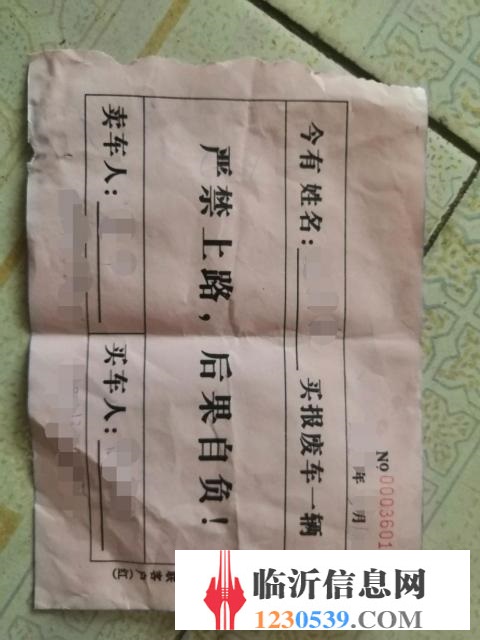 № 0003601
年 月
今有姓名： 买报废车一辆
严禁上路，后果自负！
卖车人： 买车人：
客户（红）
临沂信息网
1230539.COM